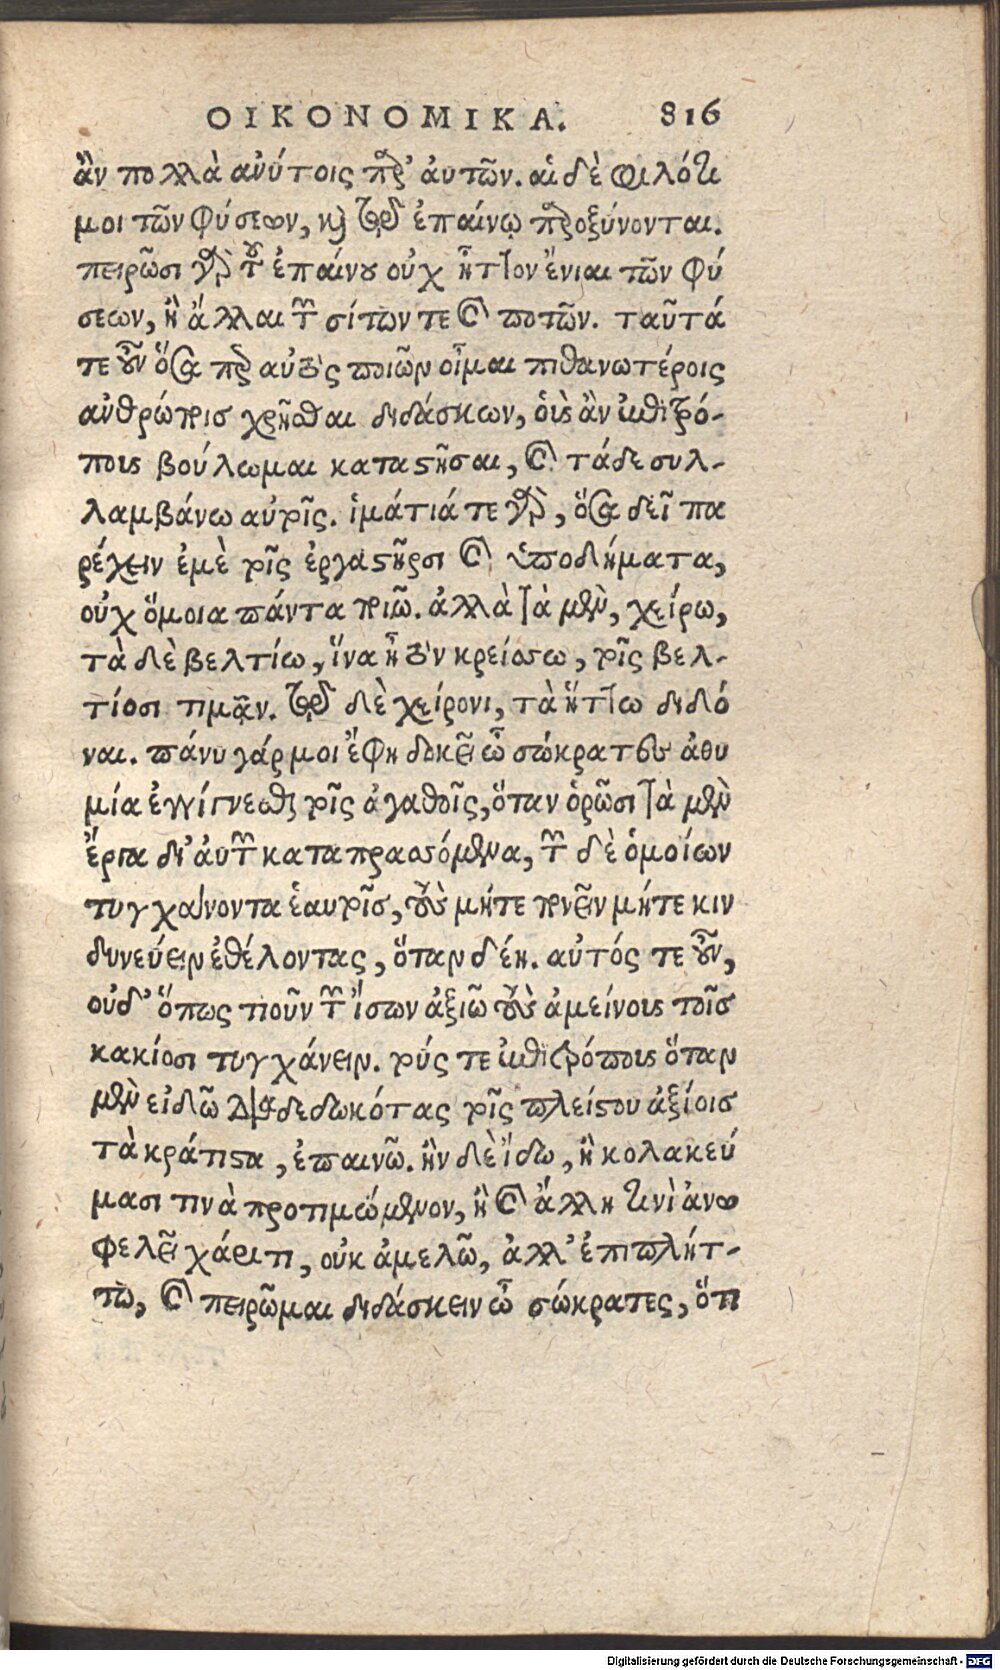 ΟΙΚΟΝΟΜΙΚΑ. 816
ἂν πολλὰ ἀνύτοις παρ’ ἀυτῶν. αἱ δὲ φιλότι
μοι τῶν φύσεων, καὶ τῷ ἐπαίνῳ παροξύνονται.
πεινῶσι γὰρ τοῦ ἐπαίνου οὐχ ἧττον ἔνιαι τῶν φύ
σεων, ἢ ἄλλαι τῶν σίτων τε καὶ ποτῶν. ταῦτά
τε οὖν ὅσα πὲρ αὐτὸς ποιῶν οἶμαι πιθανωτέροις
ἀνθρώποις χρῆσθαι διδάσκων, οὓς ἂν ἐπιτρό-
πους βούλωμαι καταστῆσαι, καὶ τάδε συλ-
λαμβάνω αὐτοῖς. ἱμάτιά τε γὰρ, ὅσα δεῖ πα
ρέχειν ἐμὲ τοῖς ἐργαστῆρσι καὶ ὑποδήματα,
οὐχ ὅμοια πάντα ποιῶ. ἀλλὰ τὰ μὲν, χείρω,
τὰ δὲ βελτίω, ἵνα ᾖ τὸν κρείσσω, τοῖς βελ-
τίοσι τιμᾶν. τῷ δὲ χείρονι, τὰ ἥττω διδό
ναι. πάνυ γάρ μοι ἔφη δοκεῖ ὦ σώκρατες ἀθυ
μία ἐγγίγνεσθαι τοῖς ἀγαθοῖς, ὅταν ὁρῶσι τὰ μὲν
ἔργα δι’ ἀυτῶν καταπρασσόμενα, τῶν δὲ ὁμοίων
τυγχάνοντα ἑαυτοῖς, τοὺς μήτε πονεῖν μήτε κιν
δυνεύειν ἐθέλοντας, ὅταν δέῃ. αὐτός τε οὖν,
οὐδ’ ὅπως τιοῦν τῶν ἴσων ἀξιῶ τοὺς ἀμείνους τοῖς
κακίοσι τυγχάνειν. τούς τε ἐπιτρόπους ὅταν
μὲν εἰδῶ διαδεδωκότας τοῖς πλείστου ἀξίοις
τὰ κράτιστα, ἐπαινῶ. ἢν δὲ ἴδω, ἢ κολακεύ
μασι τινὰ προτιμώμενον, ἢ καὶ ἄλλῃ τινὶ ἀνω
φελεῖ χάριτι, οὐκ ἀμελῶ, ἀλλ’ ἐπιπλήτ-
τω, καὶ πειρῶμαι διδάσκειν ὦ σώκρατες, ὅτι
Digitalisierung gefördert durch die Deutsche Forschungsgemeinschaft - DFG